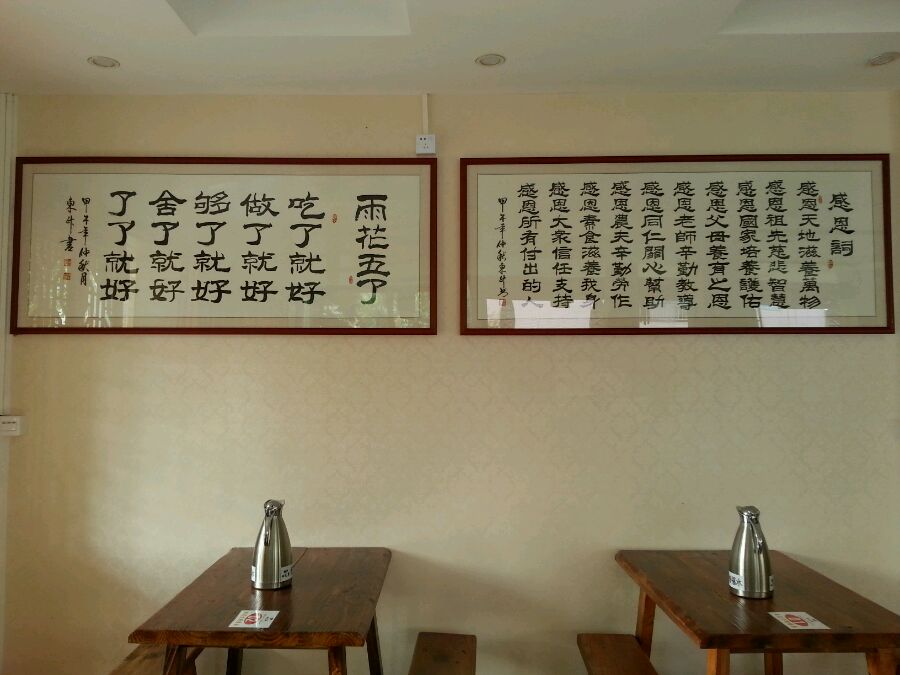 雨花五了
吃了就好
做了就好
够了就好
舍了就好
了了就好
甲午年仲秋月
感恩詞
感恩天地滋養萬物
感恩祖先慈悲智慧
感恩國家培養護佑
感恩父母養育之恩
感恩老師辛勤教導
感恩同仁關心幫助
感恩農夫辛勤劳作
感恩素食滋養我身
感恩大衆信任支持
感恩所有付出的人
甲午年仲秋